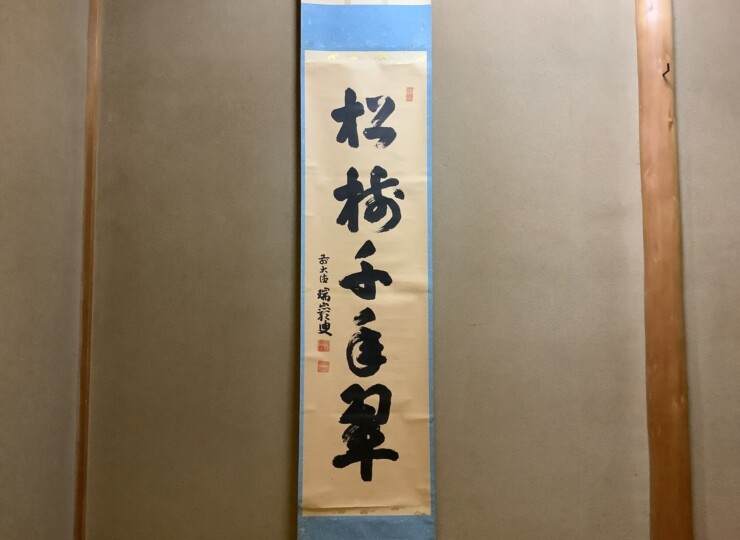 松樹千年翠
前大徳 瑞巌叟